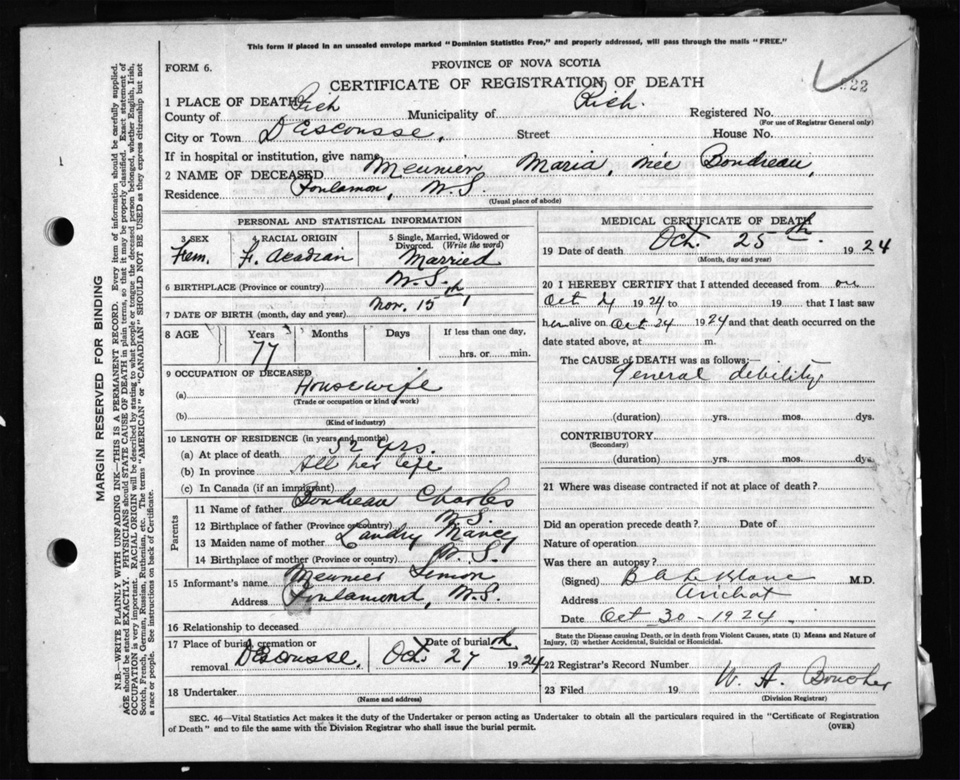 This form if placed in an unsealed envelope marked "Dominion Statistics Free," and properly addressed, will pass through the mails "FREE."
PROVINCE OF NOVA SCOTIA
FORM 6.
CERTIFICATE OF REGISTRATION OF DEATH
22
1 PLACE OF DEATH
County of Rich Municipality of Rich. Registered No.
(For use of Registrar General only)
City or Town D'Escousse, Street House No.
If in hospital or institution, give name
2 NAME OF DECEASED Meunier Maria, née Boudreau,
Residence Poulamon, N.S.
(Usual place of abode)
PERSONAL AND STATISTICAL INFORMATION
3 SEX Fem.
4 RACIAL ORIGIN Fr. Acadian
5 Single, Married, Widowed or Divorced. (Write the word) Married
6 BIRTHPLACE (Province or country) N.S.
7 DATE OF BIRTH (month, day and year) Nov. 15th,
8 AGE Years 77 Months Days If less than one day, hrs. or min.
9 OCCUPATION OF DECEASED
(a) Housewife
(Trade or occupation or kind of work)
(b)
(Kind of industry)
10 LENGTH OF RESIDENCE (in years and months)
(a) At place of death 52 yrs.
(b) In province All her life
(c) In Canada (if an immigrant)
Parents
11 Name of father Boudreau Charles
12 Birthplace of father (Province or country) N.S.
13 Maiden name of mother Landry Nancy
14 Birthplace of mother (Province or country) N.S.
15 Informant's name Meunier Simon
Address Poulamond, N.S.
16 Relationship to deceased
17 Place of burial, cremation or removal D'Escousse. Date of burial Oct. 27th 1924
18 Undertaker
(Name and address)
MEDICAL CERTIFICATE OF DEATH
19 Date of death Oct. 25th. 1924
(Month, day and year)
20 I HEREBY CERTIFY that I attended deceased from on
Oct 24 1924 to 19 that I last saw
her alive on Oct 24 1924 and that death occurred on the
date stated above, at m.
The CAUSE of DEATH was as follows:—
General debility
(duration) yrs. mos. dys.
CONTRIBUTORY
(Secondary)
(duration) yrs. mos. dys.
21 Where was disease contracted if not at place of death?
Did an operation precede death? Date of
Nature of operation
Was there an autopsy?
(Signed) B A LeBlanc M.D.
Address Arichat
Date Oct 30 - 1924.
State the Disease causing Death, or in death from Violent Causes, state (1) Means and Nature of
Injury, (2) whether Accidental, Suicidal or Homicidal.
22 Registrar's Record Number
23 Filed 19 W. A. Boucher
(Division Registrar)
SEC. 46—Vital Statistics Act makes it the duty of the Undertaker or person acting as Undertaker to obtain all the particulars required in the "Certificate of Registration
of Death" and to file the same with the Division Registrar who shall issue the burial permit.
(OVER)
MARGIN RESERVED FOR BINDING
N.B.—WRITE PLAINLY, WITH UNFADING INK—THIS IS A PERMANENT RECORD. Every item of information should be carefully supplied.
AGE should be stated EXACTLY. PHYSICIANS should STATE CAUSE OF DEATH in plain terms, so that it may be properly classified. Exact statement of
OCCUPATION is very important. RACIAL ORIGIN will be described by stating to what people or tongue the deceased person belonged, whether English, Irish,
Scotch, French, German, Russian, Ruthenian, etc. The terms "AMERICAN" or "CANADIAN" SHOULD NOT BE USED as they express citizenship but not
a race or people. See instructions on back of Certificate.